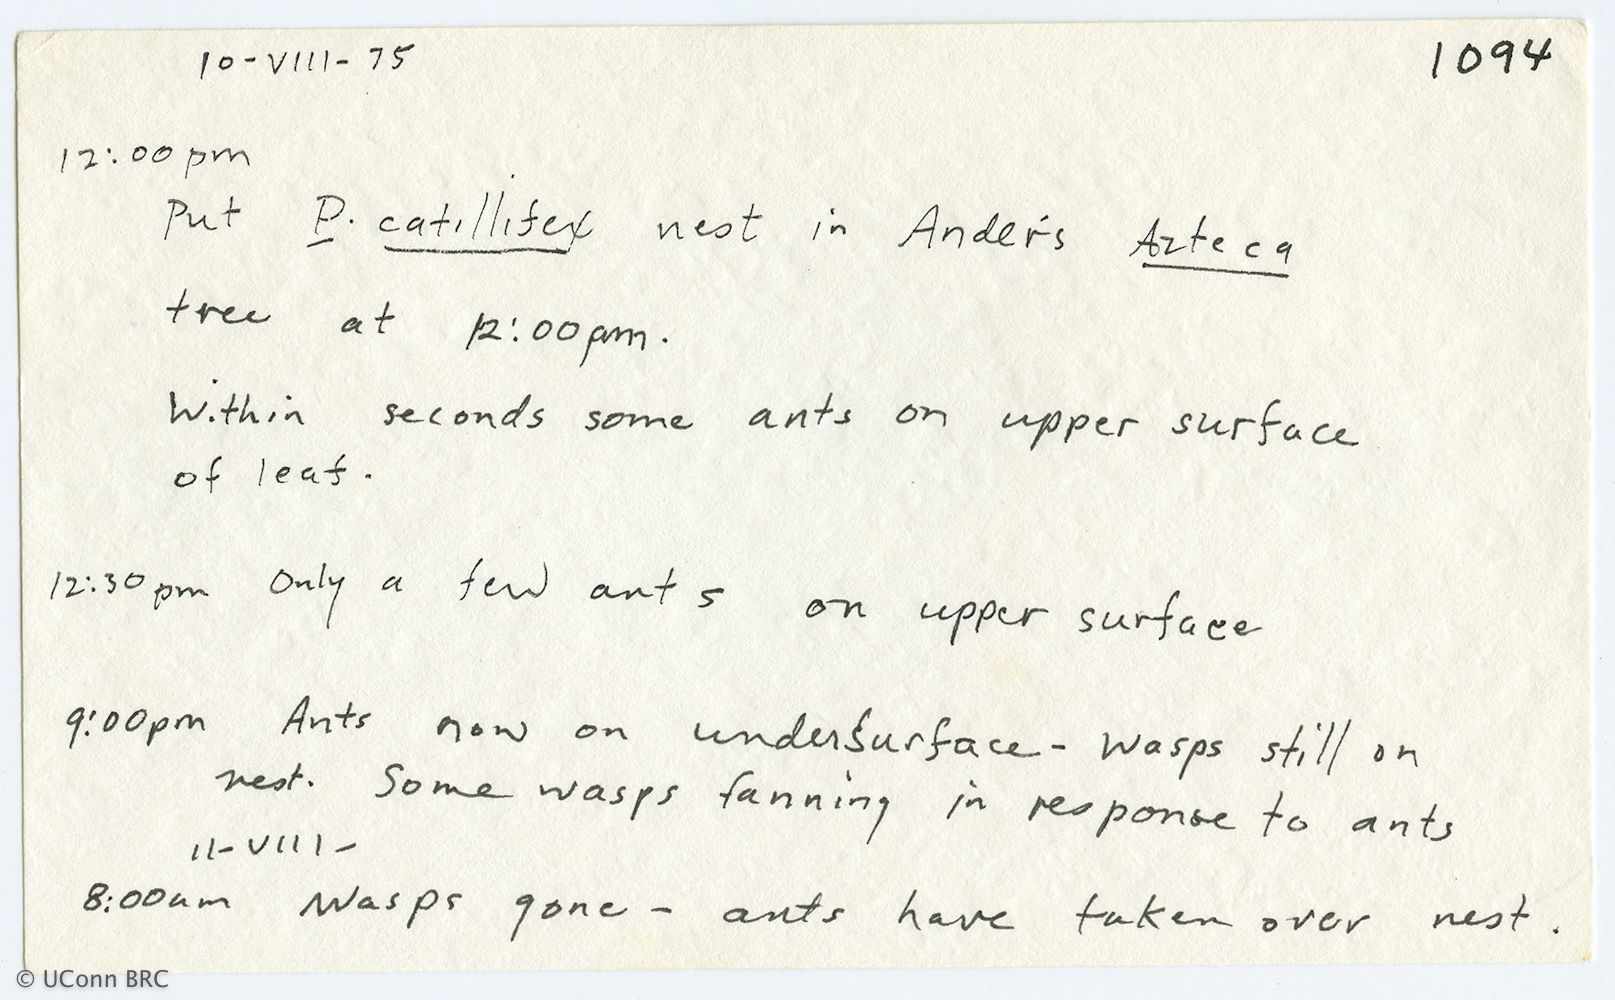 10-VIII-75
1094
12:00pm
Put P. catillifex nest in Ander's Azteca
tree at 12:00pm.
Within seconds some ants on upper surface
of leaf.
12:30pm Only a few ants on upper surface
9:00pm Ants now on undersurface - Wasps still on
nest. Some wasps fanning in response to ants
11-VIII-
8:00am Wasps gone - ants have taken over nest.
© UConn BRC